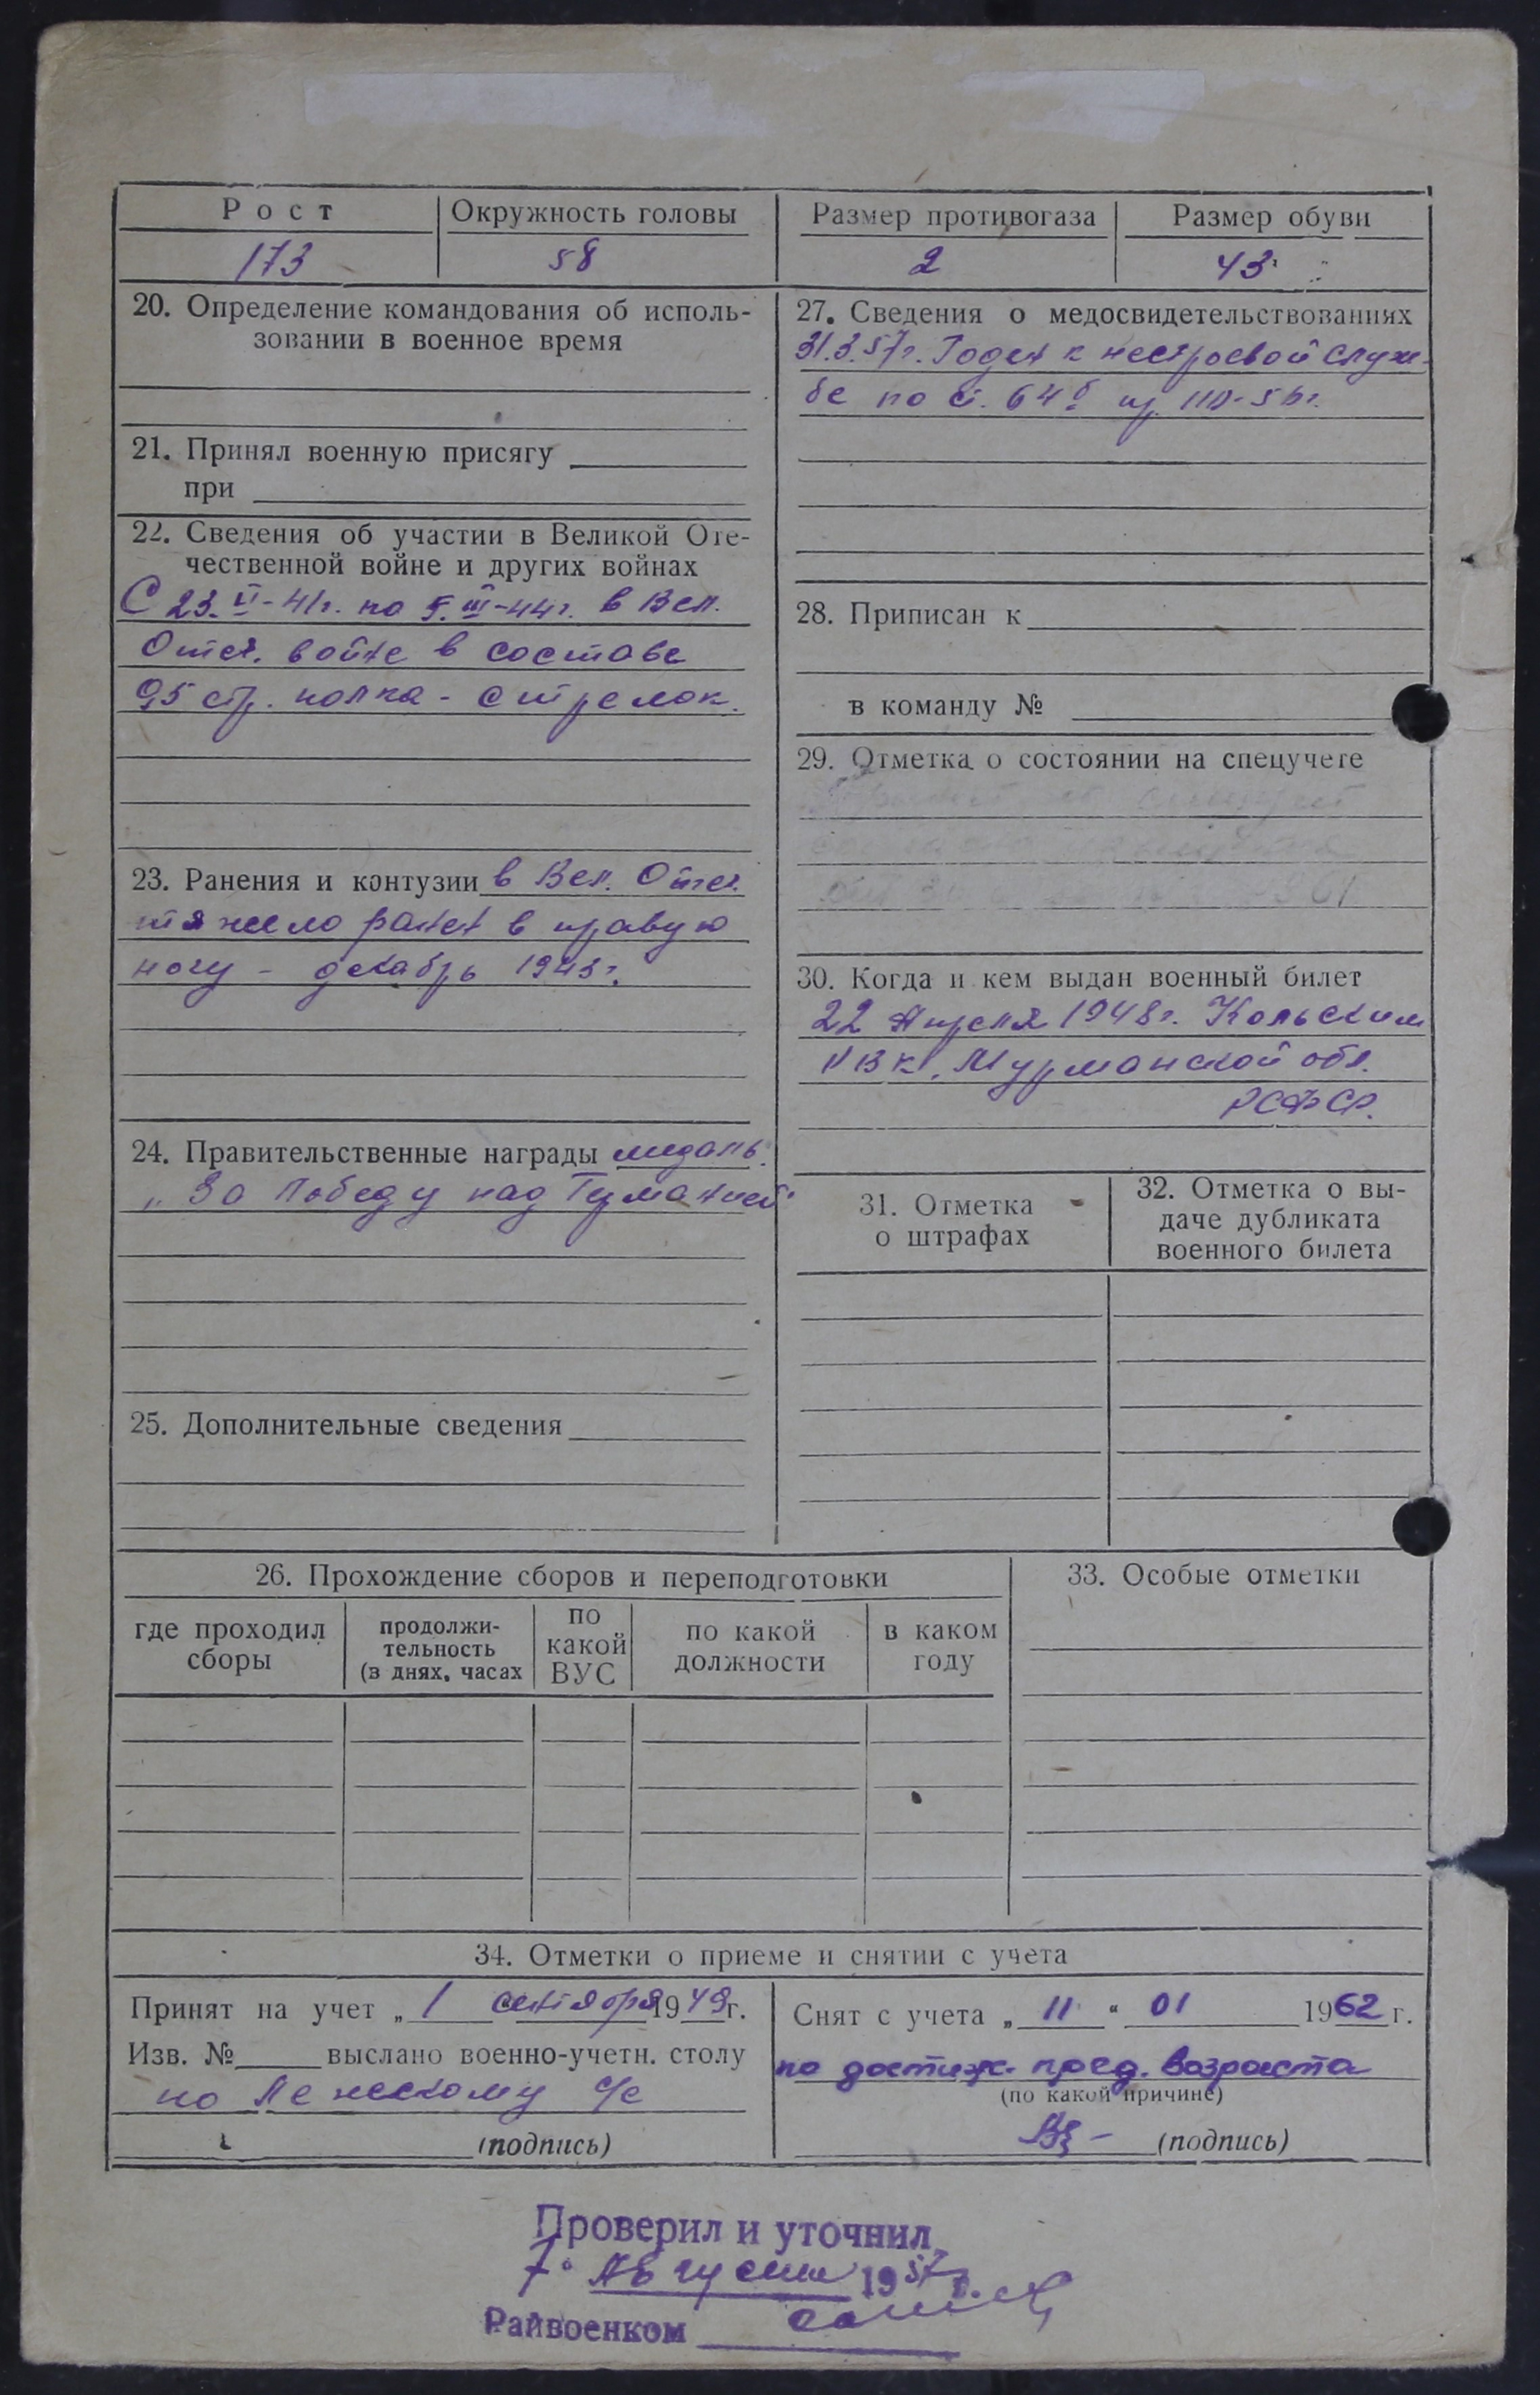 Рост
Окружность головы
Размер противогаза
Размер обуви
173
58
2
43
20. Определение командования об исполь-
зовании в военное время
21. Принял военную присягу
при
22. Сведения об участии в Великой Оте-
чественной войне и других войнах
С 23.VI-41г. по 5.III-44г. в Вел.
Отеч. войне в составе
95 стр. полка - стрелок.
23. Ранения и контузии в Вел. Отеч.
тяжело ранен в правую
ногу - декабрь 1943г.
24. Правительственные награды медаль
"За Победу над Германией"
25. Дополнительные сведения
27. Сведения о медосвидетельствованиях
31.3.57г. Годен к нестроевой служ-
бе по ст. 64б пр.
28. Приписан к
в команду №
29. Отметка о состоянии на спецучете
30. Когда и кем выдан военный билет
22 Апреля 1948г. Кольским
РВК, Мурманской обл.
РСФСР.
31. Отметка
о штрафах
32. Отметка о вы-
даче дубликата
военного билета
26. Прохождение сборов и переподготовки
где проходил
сборы
продолжи-
тельность
(в днях, часах
по
какой
ВУС
по какой
должности
в каком
году
33. Особые отметки
34. Отметки о приеме и снятии с учета
Принят на учет „1 сентября 1949г.
Изв. № выслано военно-учетн. столу
по с/с
(подпись)
Снят с учета „11“ 01 1962 г.
по достиж. пред. возраста
(по какой причине)
(подпись)
Проверил и уточнил
7. Августа 1957г.
Райвоенком